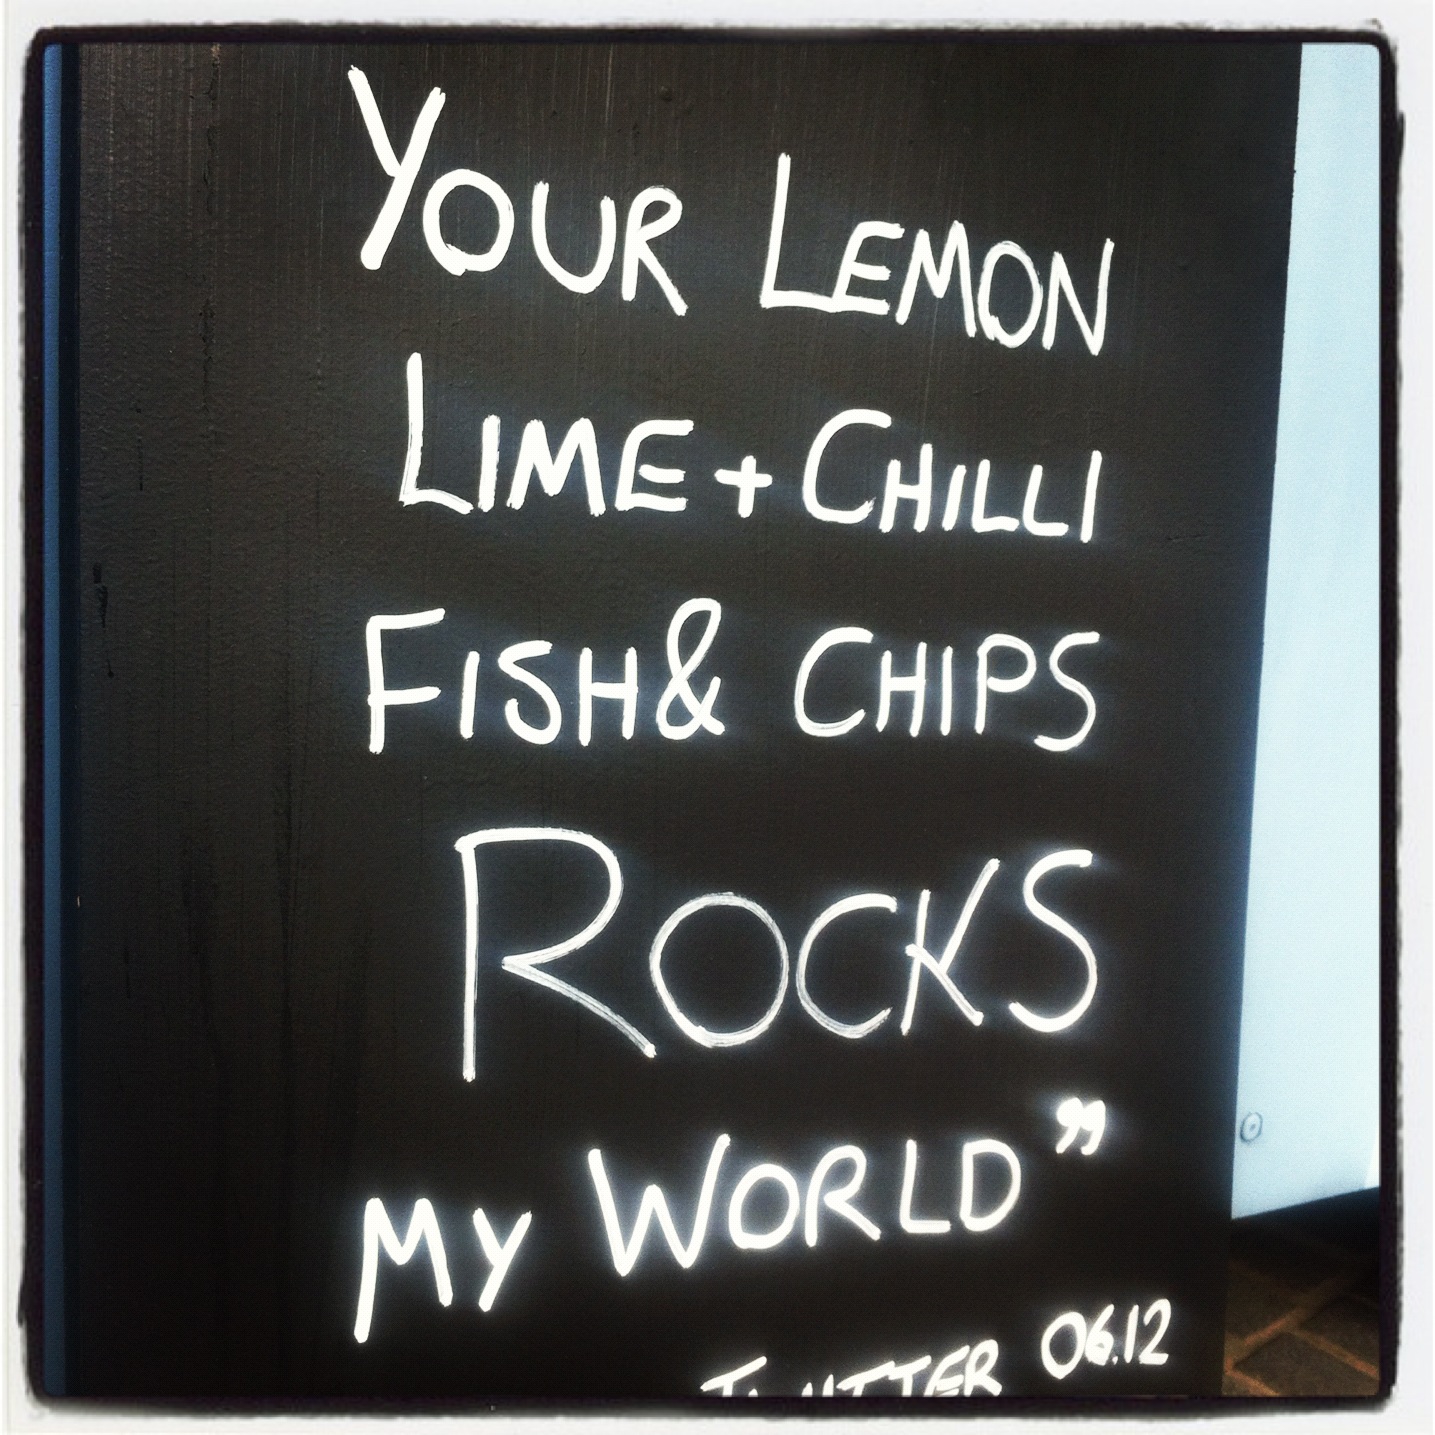 YOUR LEMON
LIME + CHILLI
FISH & CHIPS
ROCKS
MY WORLD”
TWITTER 06.12